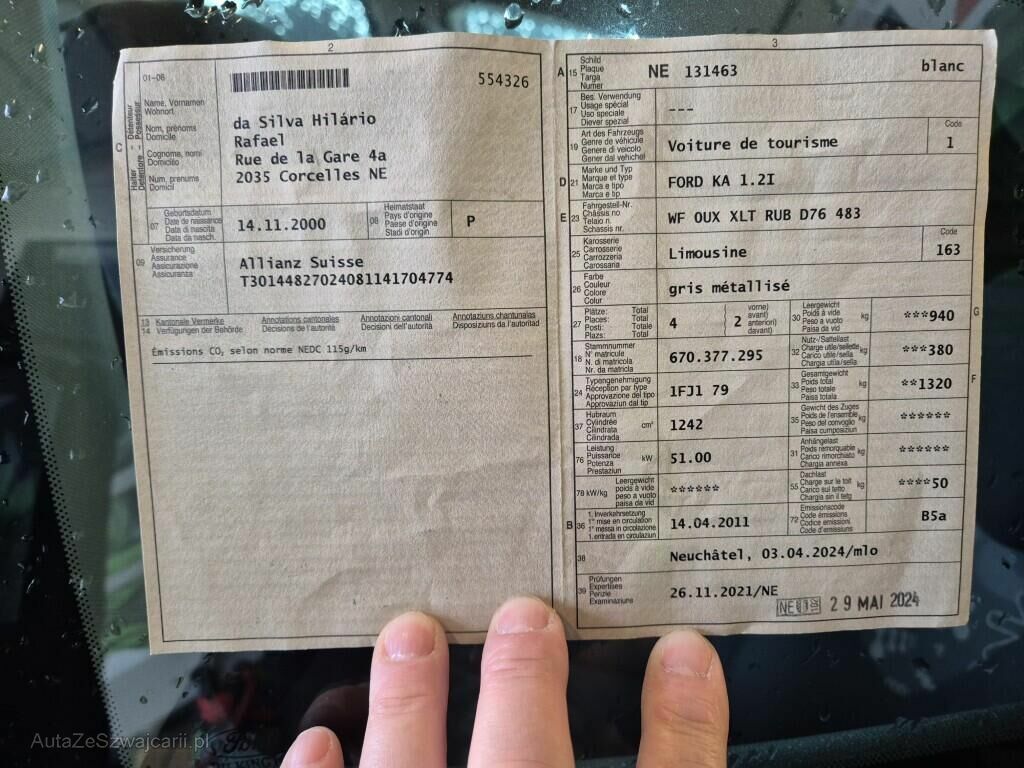 2
01-06
554326
C
Halter - Détenteur
Detentore - Possessur
Name, Vornamen
Wohnort
Nom, prénoms
Domicile
Cognome, nomi
Domicilio
Num, prenums
Domicil
da Silva Hilário
Rafael
Rue de la Gare 4a
2035 Corcelles NE
07
Geburtsdatum
Date de naissance
Data di nascita
Data da nasch.
14.11.2000
08
Heimatstaat
Pays d'origine
Paese d'origine
Stadi d'origin
P
09
Versicherung
Assurance
Assicurazione
Assicuranza
Allianz Suisse
T30144827024081141704774
13 Kantonale Vermerke Annotations cantonales Annotazioni cantonali Annotaziuns chantunalas
14 Verfügungen der Behörde Décisions de l'autorité Decisioni dell'autorità Disposiziuns da l'autoritad
Émissions CO2 selon norme NEDC 115g/km
3
A 15
Schild
Plaque
Targa
Numer
NE 131463 blanc
17
Bes. Verwendung
Usage spécial
Uso speciale
Diever spezial
---
19
Art des Fahrzeugs
Genre de véhicule
Genere di veicolo
Gener dal vehichel
Voiture de tourisme
Code
1
D 21
Marke und Typ
Marque et type
Marca e tipo
Marca e tip
FORD KA 1.2I
E 23
Fahrgestell-Nr.
Châssis no
Telaio n.
Schassis nr.
WF OUX XLT RUB D76 483
25
Karosserie
Carrosserie
Carrozzeria
Carossaria
Limousine
Code
163
26
Farbe
Couleur
Colore
Colur
gris métallisé
27
Plätze: Total
Places: Total
Posti: Totale
Plazs: Total
4
vorne)
avant)
anteriori)
davant)
2
30
Leergewicht
Poids à vide
Peso a vuoto
Paisa da vid
kg
***940
G
18
Stammnummer
N° matricule
N. di matricola
Nr. da matricla
670.377.295
32
Nutz-/Sattellast
Charge utile/sellette
Carico utile/sella
Chargia utila/sella
kg
***380
24
Typengenehmigung
Réception par type
Approvazione del tipo
Approvaziun dal tip
1FJ1 79
33
Gesamtgewicht
Poids total
Peso totale
Paisa totala
kg
**1320
F
37
Hubraum
Cylindrée
Cilindrata
Cilindrada
cm³
1242
35
Gewicht des Zuges
Poids de l'ensemble
Peso del convoglio
Paisa cumposiziun
kg
******
76
Leistung
Puissance
Potenza
Prestaziun
kW
51.00
31
Anhängelast
Poids remorquable
Carico rimorchiato
Chargia annexa
kg
******
78 kW/kg
Leergewicht
poids à vide
peso a vuoto
paisa da vid
******
55
Dachlast
Charge sur le toit
Carico sul tetto
Chargia sin il tetg
kg
****50
B 36
1. Inverkehrsetzung
1re mise en circulation
1a messa in circolazione
1. entrada en circulaziun
14.04.2011
72
Emissionscode
Code émissions
Codice emissioni
Code d'emissiuns
B5a
38
Neuchâtel, 03.04.2024/mlo
39
Prüfungen
Expertises
Perizie
Examinaziuns
26.11.2021/NE
29 MAI 2024
AutaZeSzwajcarii.pl